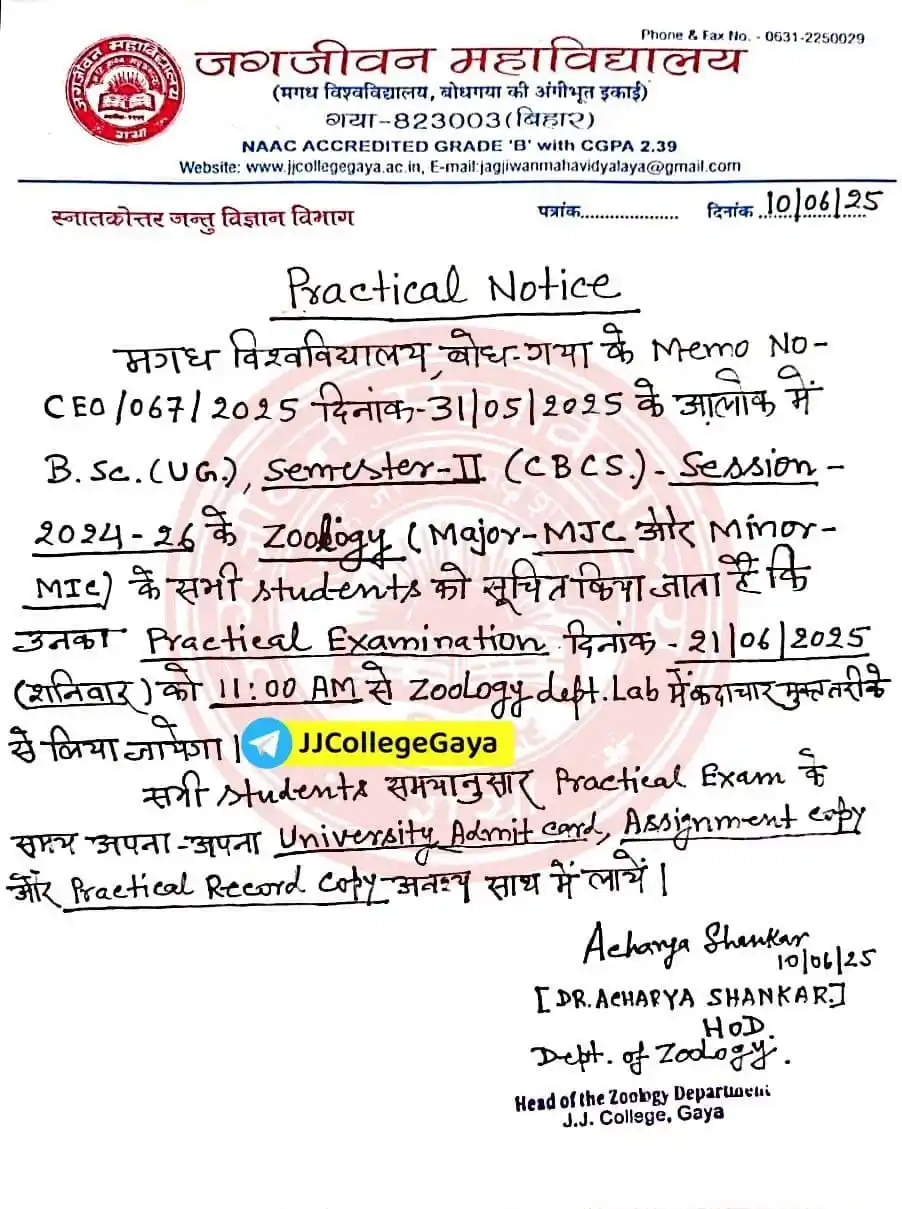 Phone & Fax No. - 0631-2250029
जगजीवन महाविद्यालय
(मगध विश्वविद्यालय, बोधगया की अंगीभूत इकाई)
गया-823003 (बिहार)
NAAC ACCREDITED GRADE 'B' with CGPA 2.39
Website: www.jjcollegegaya.ac.in, E-mail:jagjiwanmahavidyalaya@gmail.com
स्नातकोत्तर जन्तु विज्ञान विभाग
पत्रांक.................... दिनांक 10/06/25
Practical Notice
मगध विश्वविद्यालय, बोध-गया के Memo No-
CEO/067/2025 दिनांक-31/05/2025 के आलोक में
B.Sc.(UG.), Semester-II (CBCS.)- Session-
2024-26 के Zoology (Major-MJC और Minor-
MIC) के सभी students को सूचित किया जाता है कि
उनका Practical Examination दिनांक-21/06/2025
(शनिवार) को 11:00 AM से Zoology dept. Lab में कदाचार मुक्त तरीके
से लिया जायेगा। JJCollegeGaya
सभी students समयानुसार Practical Exam के
समय अपना-अपना University Admit card, Assignment copy
और Practical Record Copy अवश्य साथ में लायें।
Acharya Shankar
10/06/25
[DR. ACHARYA SHANKAR.]
HOD.
Dept. of Zoology.
Head of the Zoology Department
J.J. College, Gaya